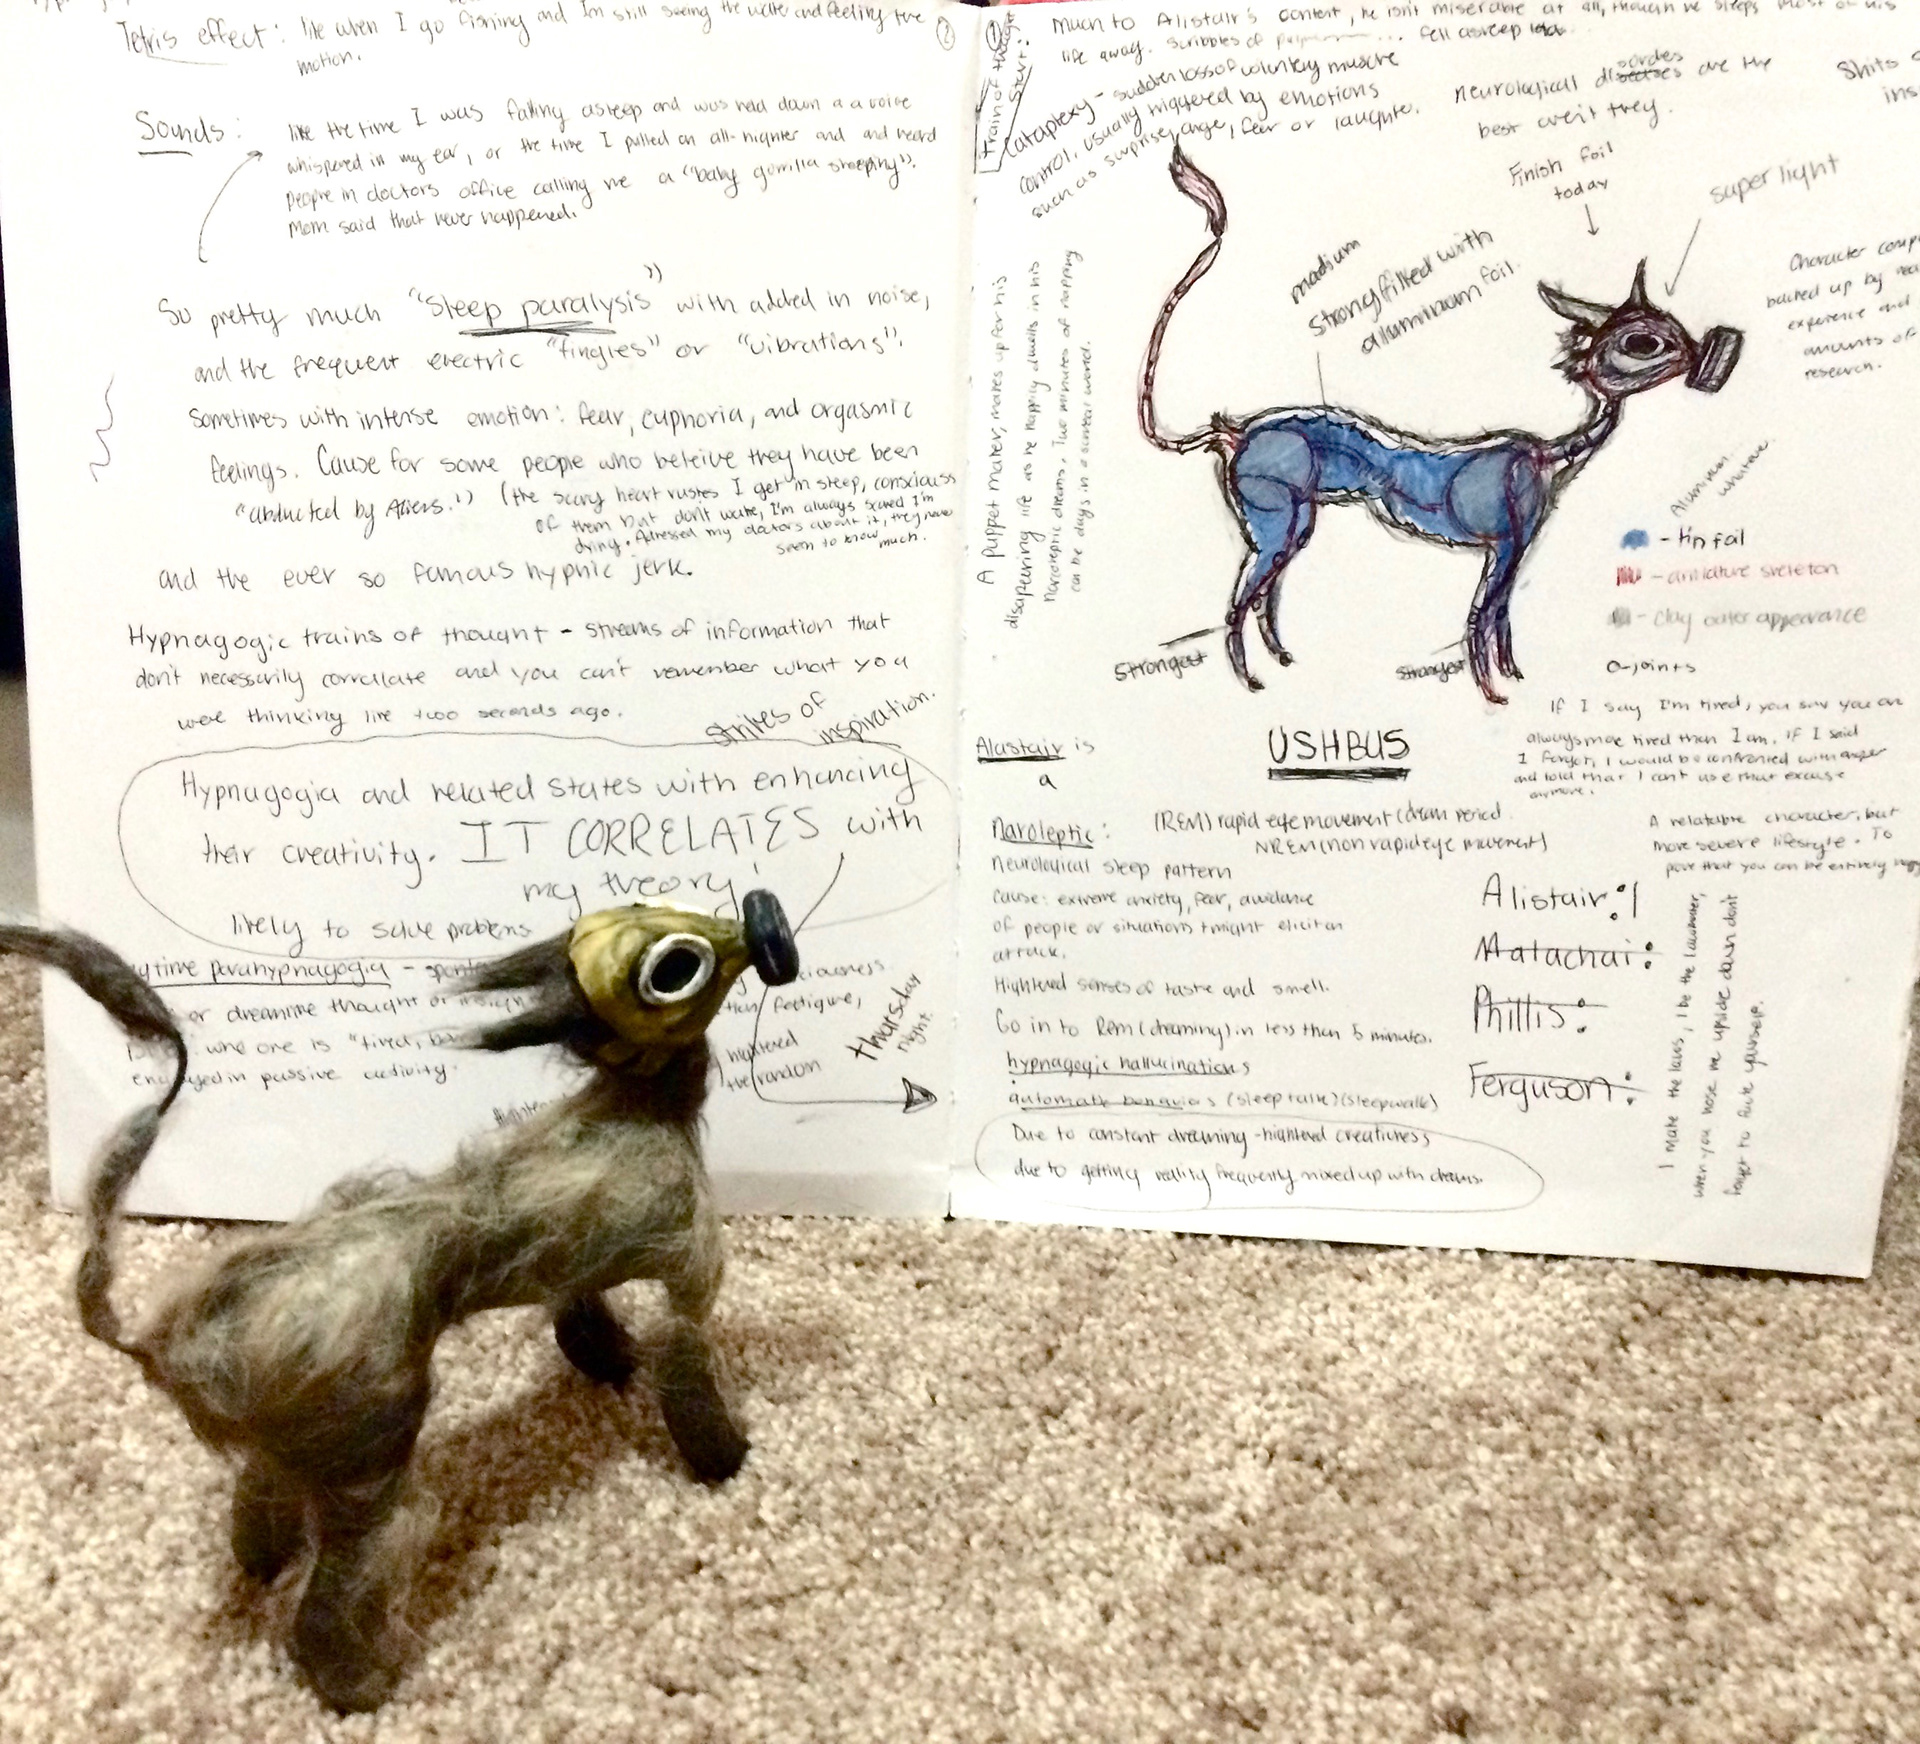 Tetris effect: like when I go fishing and Im still seeing the water and feeling the
motion.
2
Sounds:
like the time I was falling asleep and was held down a a voice
whispered in my ear, or the time I pulled an all-nighter and and heard
people in doctors office calling me a "baby gorilla sleeping".
Mom said that never happened.
So pretty much "Sleep paralysis" with added in noise,
and the frequent electric "tingles" or "vibrations".
Sometimes with intense emotion: fear, euphoria, and orgasmic
feelings. Cause for some people who beleive they have been
"abducted by Aliens." (the scary heart rushes I get in sleep, conscious
of them but don't wake, I'm always scared I'm
dying. Adressed my doctors about it, they never
seem to know much.
and the ever so famous hypnic jerk.
Hypnagogic trains of thought - streams of information that
don't necessarily corralate and you can't remember what you
were thinking like two seconds ago.
strikes of
inspiration.
Hypnagogia and related states with enhancing
their creativity. IT CORRELATES with
my theory!
likely to solve problems
parahypnagogia -
or dreamlike thought or
one is "tired,
engaged in passive activity.
fatigue,
hightened
the random
thursday
night.
1
train of thought
Start:
much to Alistair's content, he isn't miserable at all, though he sleeps most of his
life away. Scribbles of ... fell asleep
Cataplexy - sudden loss of voluntary muscle
control, usually triggered by emotions
such as surprise, ange, fear or laughte.
neurological disordes are the
best aren't they.
Shits
Finish foil
today
super light
medium
strong filled with
alluminum foil.
Character
backed up by
experience and
amounts of
research.
A puppet maker, makes up for his
disapearing life as he happily dwells in his
narcoleptic dreams. Two minutes of napping
can be days in a surreal world.
Aluminum.
whatever
- tin foil
- armature skeleton
- clay outer apperance
o-joints
Strongest
Strongest
USHBUS
Alastair is
a
Naroleptic:
(REM) rapid eye movement (dream period
NREM (non rapid eye movement)
neurological sleep pattern
cause: extreme anxiety, fear, avoidance
of people or situations tmight elicit an
attack.
Hightned senses of taste and smell.
Go in to Rem (dreaming) in less than 5 minutes.
hypnagogic hallucinations
automatic behaviors (sleeptalk) (sleepwalk)
Due to constant dreaming - hightened creativness
due to getting reality frequently mixed up with dreams.
If I say I'm tired, you say you are
always more tired than I am. If I said
I forgot, I would be confronted with anger
and told that I can't use that excuse
anymore.
A relatable character, but
more severe lifestyle. To
prove that you can be entirely happy
Alistair:
Malachai:
Phillis:
Ferguson:
I make the laws, I be the lawmaker,
when you hose me upside down don't
forget to fuck yourself.